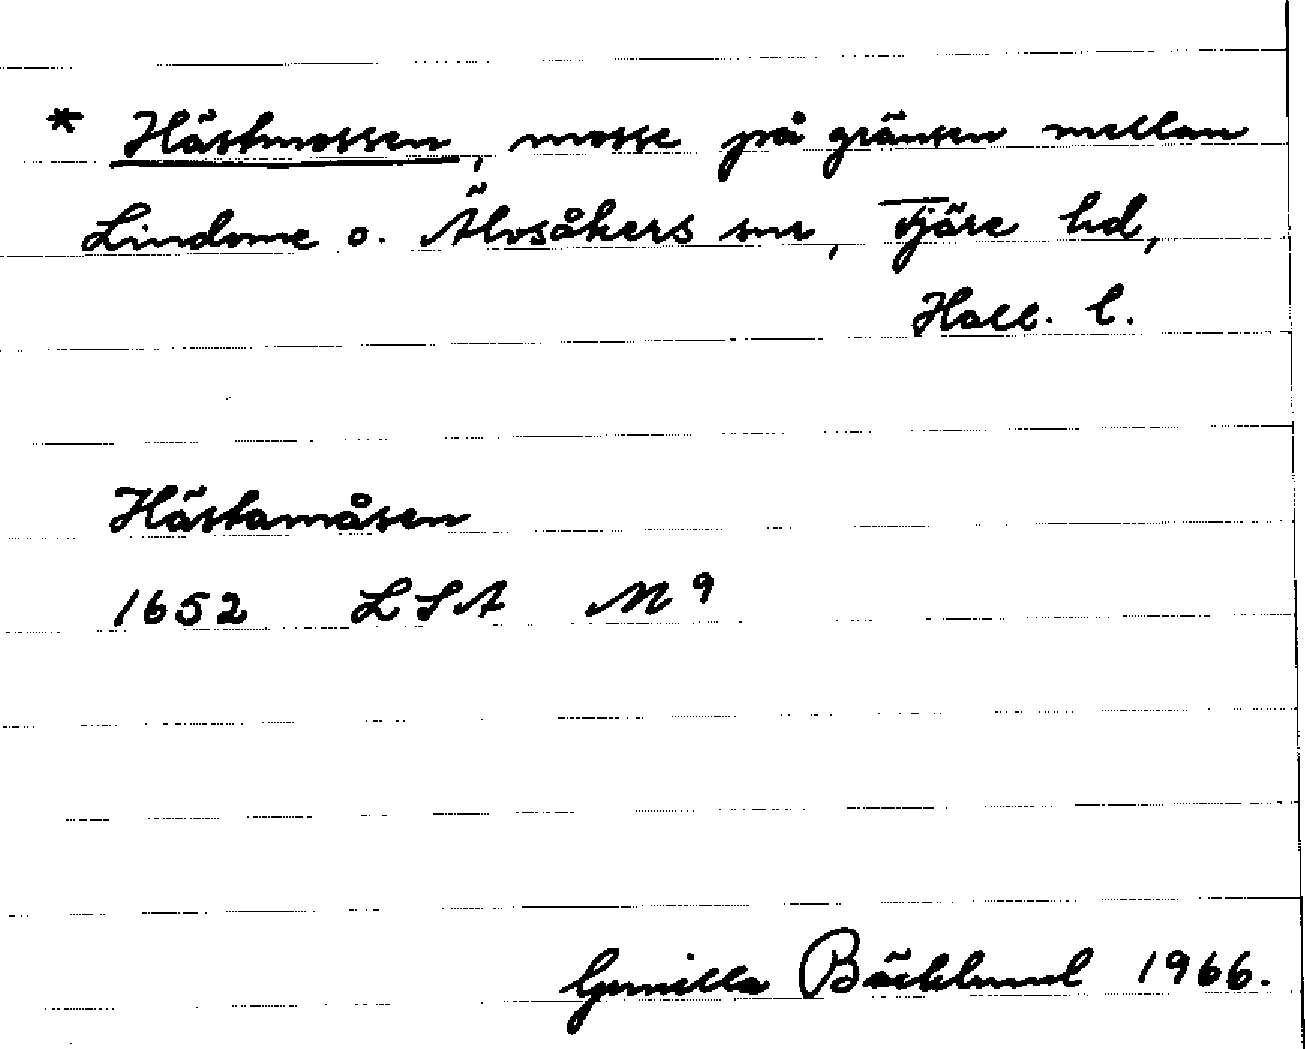 * Hästmossen, mosse på gränsen mellan
Lindome o. Älvsåkers snr, Fjäre hd,
Hall. l.
Hästamåsen
1652 LSA M 9
Gunilla Bäcklund 1966.